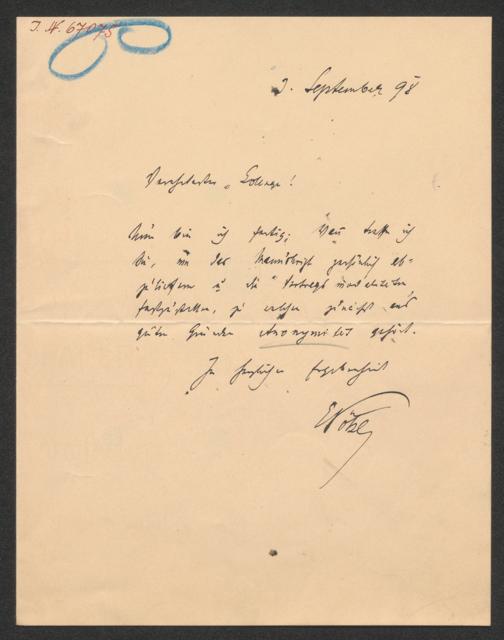 I. N. 67075
2. September 98
Verehrtester College!
Nun bin ich fertig; wann treffe ich
Sie, um das Manuscript persönlich ab-
zuliefern u die Vertragsmodalitäten
festzustellen, zu welchen zunächst aus
guten Gründen Anonymität gehört.
In herzlicher Ergebenheit